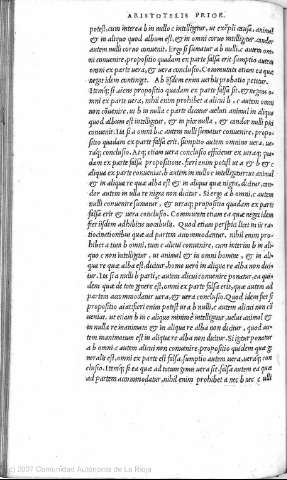 ARISTOTELIS PRIOR.
potest, cum interea b in omo c intelligitur, ut exépli causa, animal
et in aliquo quod album est, et in omni coruo intelligitur. candor
autem nulli coruo conuenit. Ergo si sumatur a b nulli, c autem om
ni conuenire, propositio quidem ex parte falsa erit sumptio autem
omni ex parte uera, et uera conclusio. Commenta etiam ea quæ
negat idem contingit. Ab iisdem uerbis probatio petitur.
Itemq; si aiens propositio quidem ex parte falsa sit, et negans o-
mni ex parte uera, nihil enim prohibet a alicui b, c autem omni
non conuenire,
quod album est intelligitur, et in pice nulla, et candor nulli pici
conuenit. Ita si a omni b, c autem nulli sumatur conuenire, propo-
sitio quidem ex parte falsa erit, sumptio autem omnino uera, ue-
raq; conclusio. Atq; etiam uera conclusio efficietur ex utraq; qui-
dam ex parte falsa propositione. fieri enim potest ut a et b et c
aliqua ex parte conueniat, b autem in nullo c intelligatur: ut animal
et in aliqua re alba est et in aliqua quæ nigra, dicitur, can-
dor autem in ulla re nigra non dicitur. Si ergo a b omni, c autem
nulli conuenire sumatur, et utraq; propositio quadam ex parte
falsa erit et uera conclusio. Commenta etiam ea quæ negat idem
fiet iisdem adhibitis uocabulis. Quod etiam perspici licet in iis ra-
tiocinationibus quæ ad partem accommodantur, nihil enim pro-
hibet a toti b omni, tum c alicui conuenire, cum interim b in ali-
quo c non intelligitur, ut animal et in omni homine, et in ali-
qua re quæ alba est, dicitur, homo uero in aliqua re alba non dici-
tur. Ita si a nulli b parti, c autem alicui conuenire ponatur, ea qui-
dem quæ de toto genere est, omni ex parte falsa erit, quæ autem ad
partem accommodatur uera, et uera conclusio. Quod idem fiet si
propositio aiat: fieri enim potest ut a b nulli, c autem alicui non con
ueniat, ut etiam b in c aliquo minime intelligatur, uelut animal et
in nulla re inanimata et in aliqua re alba non dicitur, quod au-
tem inanimatum est in aliqua re alba non dicitur. Si igitur ponatur
a b omni, c autem alicui non conuenire, propositio quidem quæ ge
neralis est, omni ex parte est falsa, sumptio autem uera, ueraq; con
clusio. Itemq; si ea quæ ad totum genus uera sit, falsa autem ea quæ
ad partem accommodatur, nihil enim prohibet a nec b nec c ulli
(c) 2007 Comunidad Autónoma de La Rioja